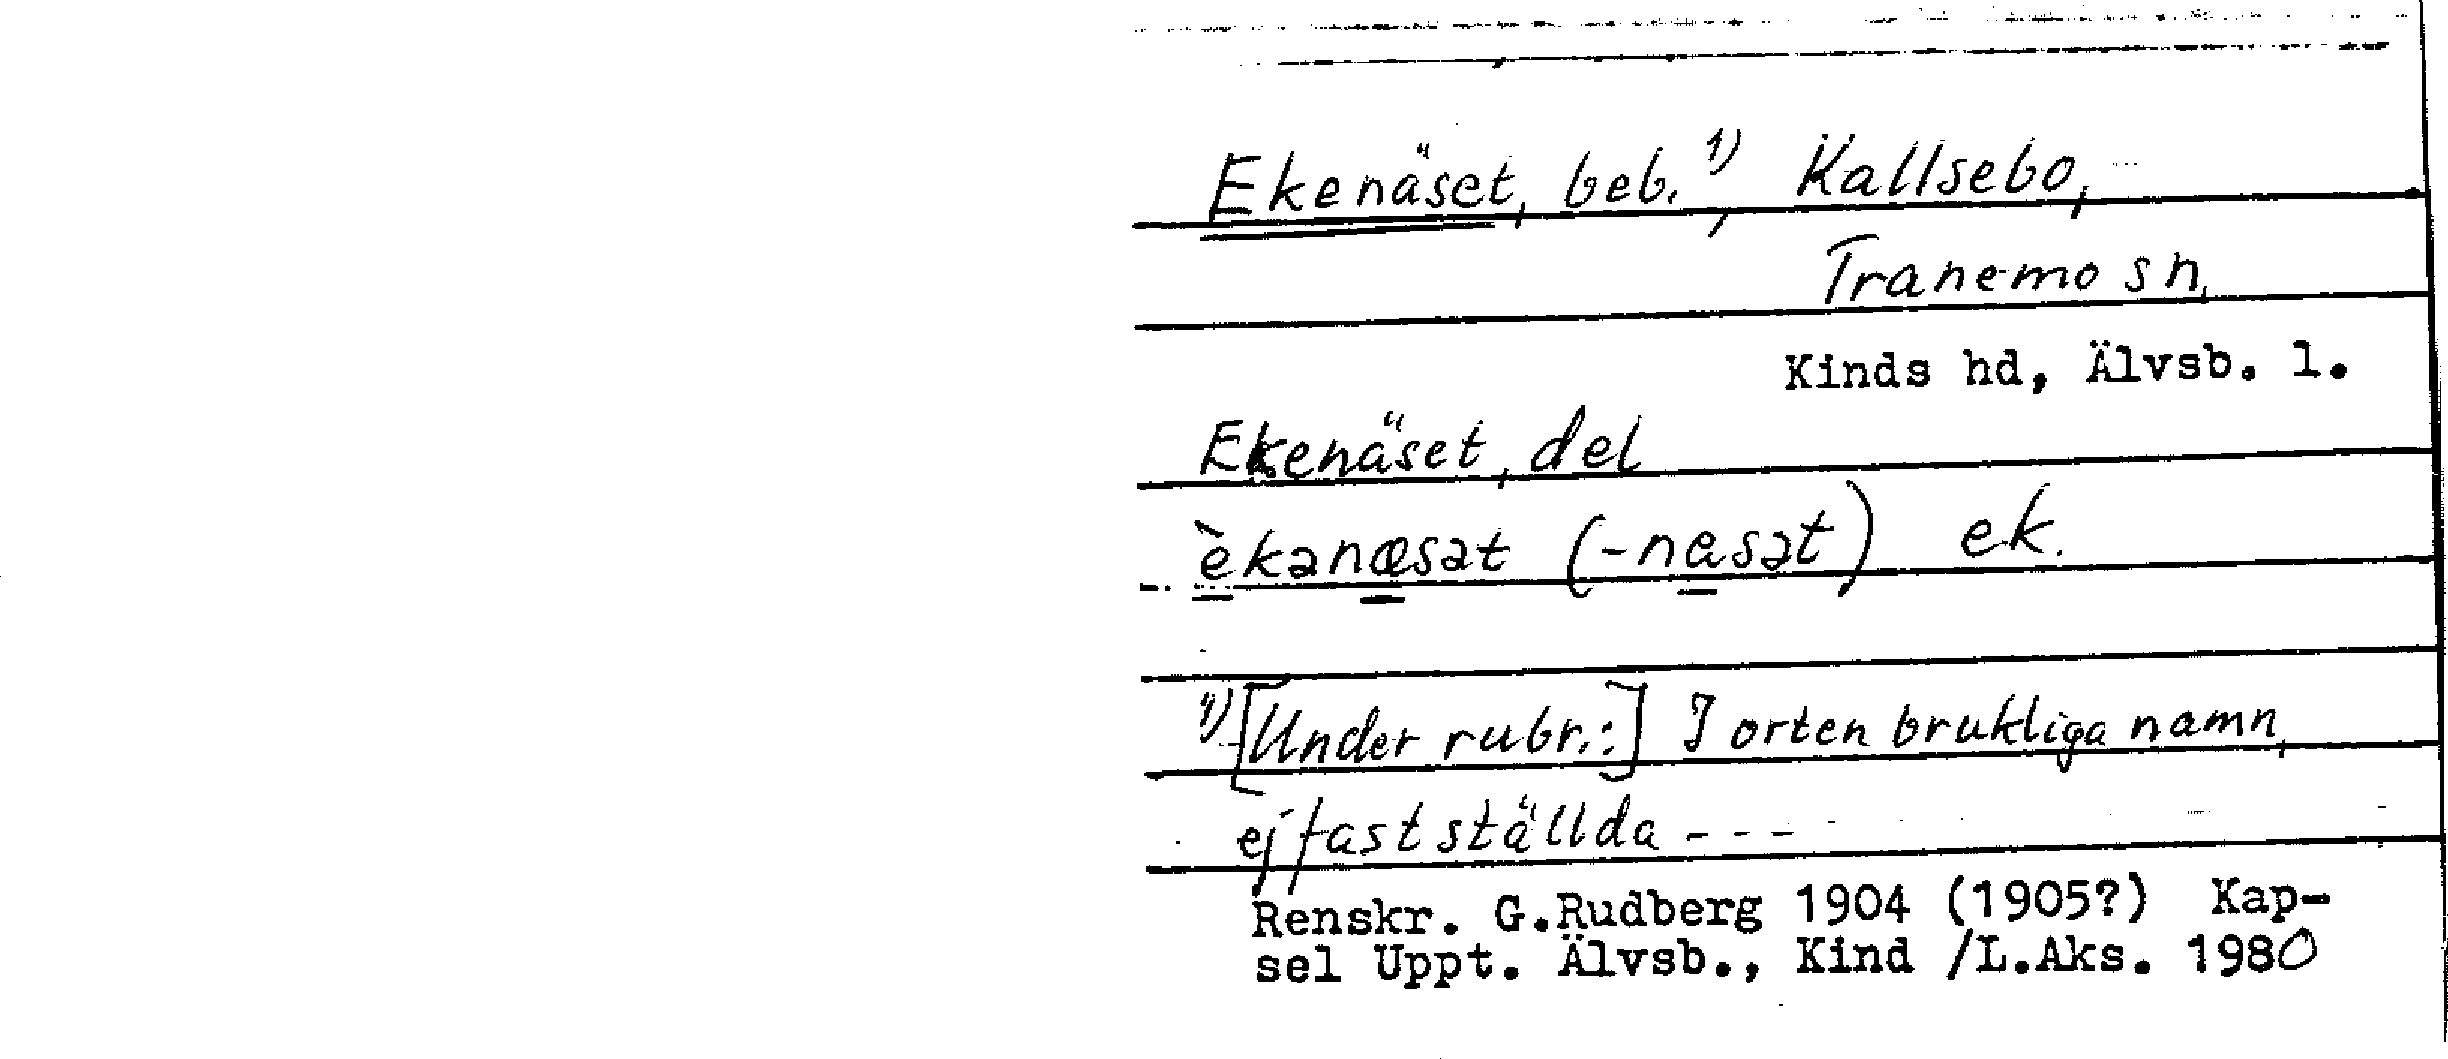 Ekenäset, beb.¹⁾, Kallsebo,
Tranemo sn,
Kinds hd, Älvsb. l.
Ekenäset, del
èkanæsat (-nasat) ek.
¹⁾[Under rubr.:] I orten brukliga namn,
ej fastställda - - -
Renskr. G.Rudberg 1904 (1905?) Kap-
sel Uppt. Älvsb., Kind /L.Aks. 1980